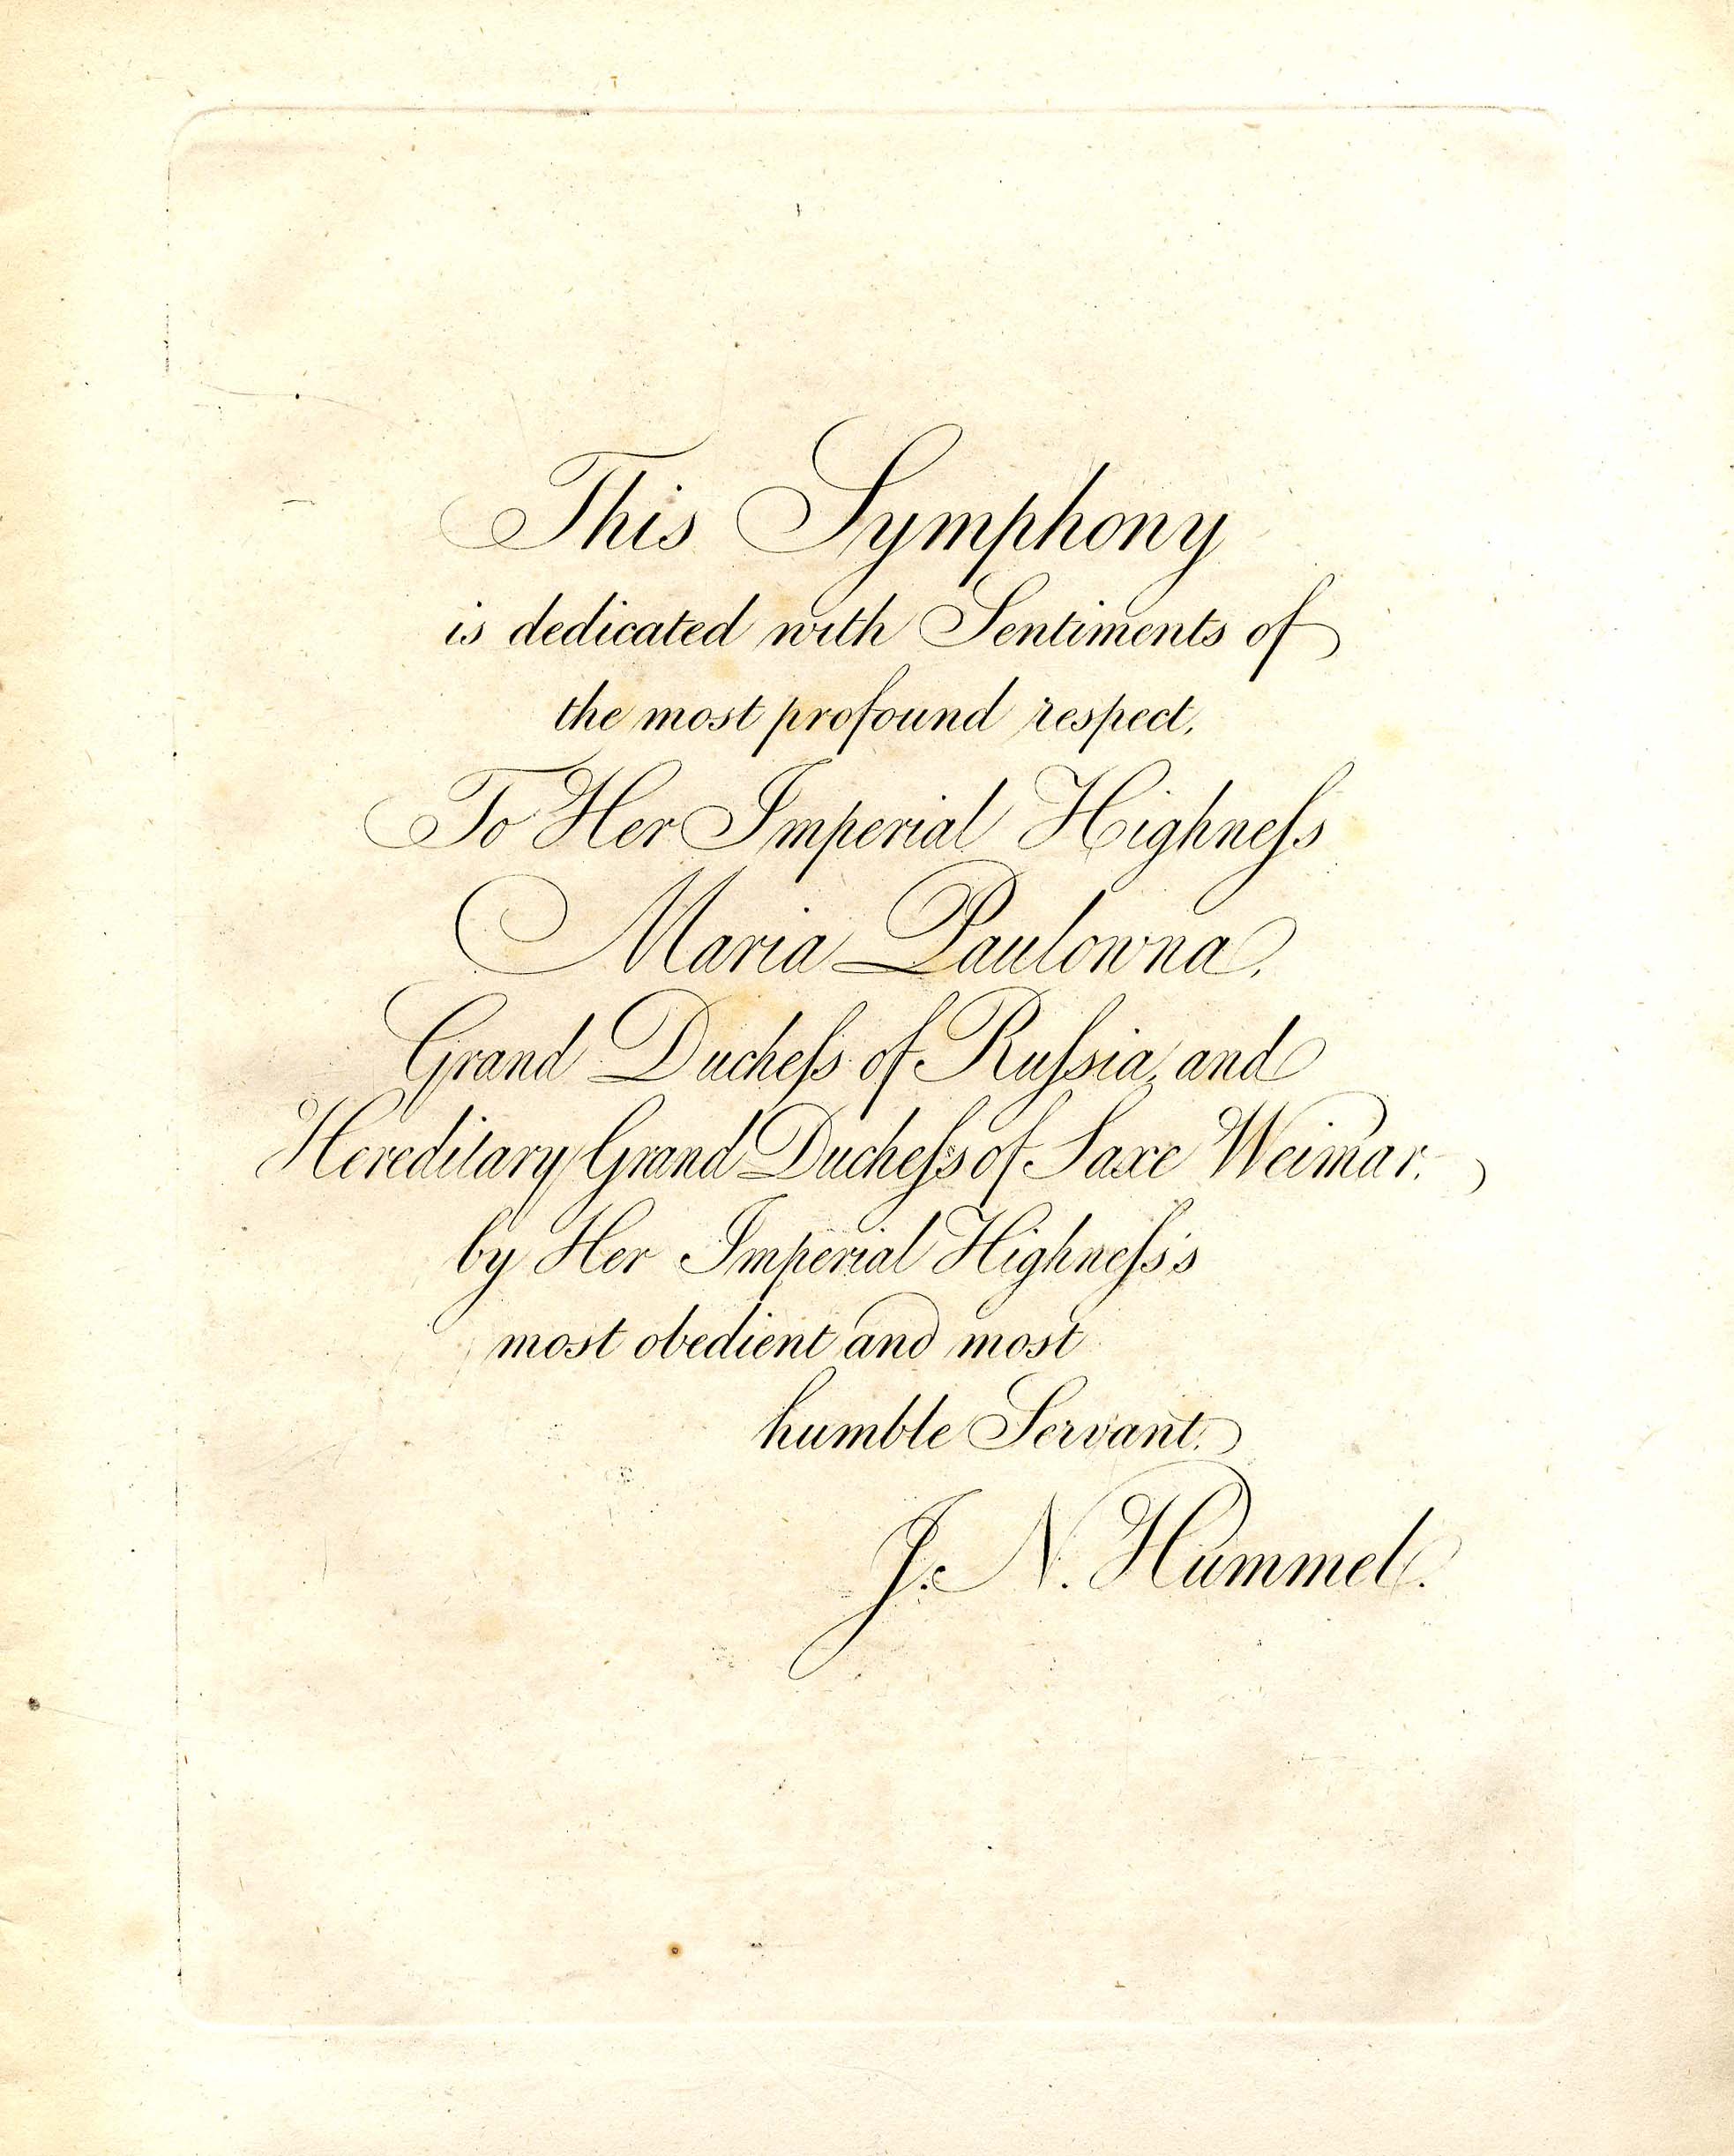 This Symphony
is dedicated with Sentiments of
the most profound respect,
To Her Imperial Highneſs
Maria Paulowna,
Grand Ducheſs of Ruſsia, and
Hereditary Grand Ducheſs of Saxe Weimar.
by Her Imperial Highneſs's
most obedient and most
humble Servant.
J. N. Hummel.